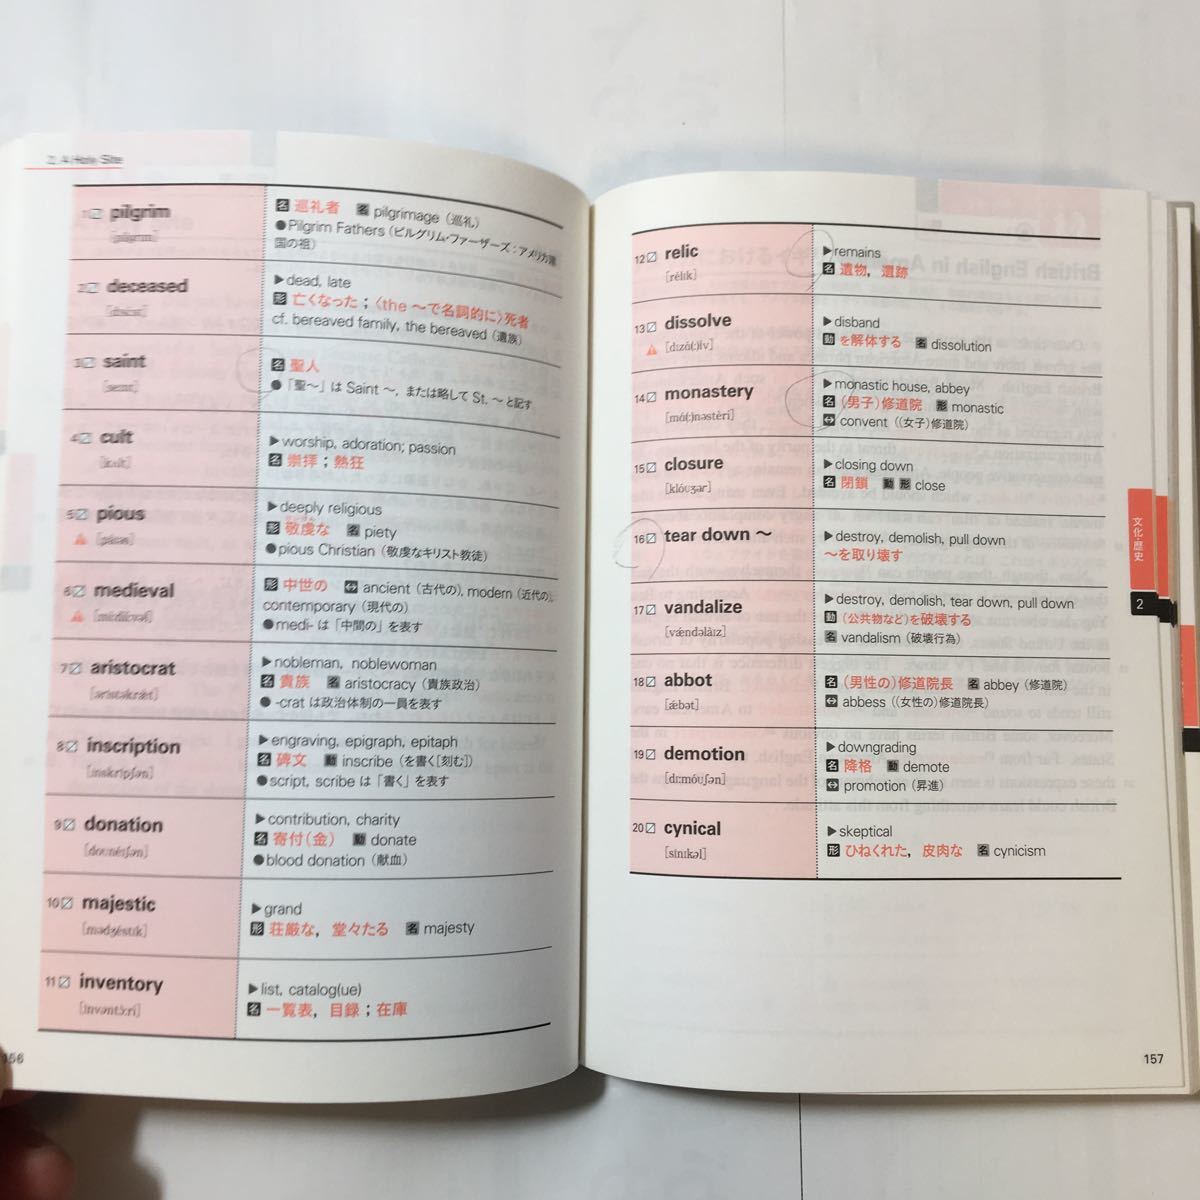 2. A Holy Site
1 pilgrim
名 巡礼者 名 pilgrimage（巡礼）
●Pilgrim Fathers（ピルグリム・ファーザーズ：アメリカ建
国の祖）
2 deceased
▶dead, late
形 亡くなった；〈the ～で名詞的に〉死者
cf. bereaved family, the bereaved（遺族）
3 saint
名 聖人
●「聖～」は Saint ～，または略して St. ～と記す
4 cult
▶worship, adoration; passion
名 崇拝；熱狂
5 pious
▶deeply religious
形 敬虔な 名 piety
●pious Christian（敬虔なキリスト教徒）
6 medieval
形 中世の ↔ ancient（古代の）, modern（近代の）,
contemporary（現代の）
●medi- は「中間の」を表す
7 aristocrat
▶nobleman, noblewoman
名 貴族 名 aristocracy（貴族政治）
● -crat は政治体制の一員を表す
8 inscription
[ɪnskrípʃən]
▶engraving, epigraph, epitaph
名 碑文 動 inscribe（を書く[刻む]）
●script, scribe は「書く」を表す
9 donation
[doʊnéɪʃən]
▶contribution, charity
名 寄付（金） 動 donate
●blood donation（献血）
10 majestic
[mədʒéstɪk]
▶grand
形 荘厳な，堂々たる 名 majesty
11 inventory
[ínvəntɔ̀ːri]
▶list, catalog(ue)
名 一覧表，目録；在庫
12 relic
[rélɪk]
▶remains
名 遺物，遺跡
13 dissolve
[dɪzá(ː)lv]
▶disband
動 を解体する 名 dissolution
14 monastery
[má(ː)nəstèri]
▶monastic house, abbey
名（男子）修道院 形 monastic
↔ convent（（女子）修道院）
15 closure
[klóʊʒər]
▶closing down
名 閉鎖 動 形 close
16 tear down ～
▶destroy, demolish, pull down
～を取り壊す
17 vandalize
[vǽndəlàɪz]
▶destroy, demolish, tear down, pull down
動（公共物など）を破壊する
名 vandalism（破壊行為）
18 abbot
[ǽbət]
名（男性の）修道院長 名 abbey（修道院）
↔ abbess（（女性の）修道院長）
19 demotion
[dɪːmóʊʃən]
▶downgrading
名 降格 動 demote
↔ promotion（昇進）
20 cynical
[sínɪkəl]
▶skeptical
形 ひねくれた，皮肉な 名 cynicism
文化・歴史
2
156
157